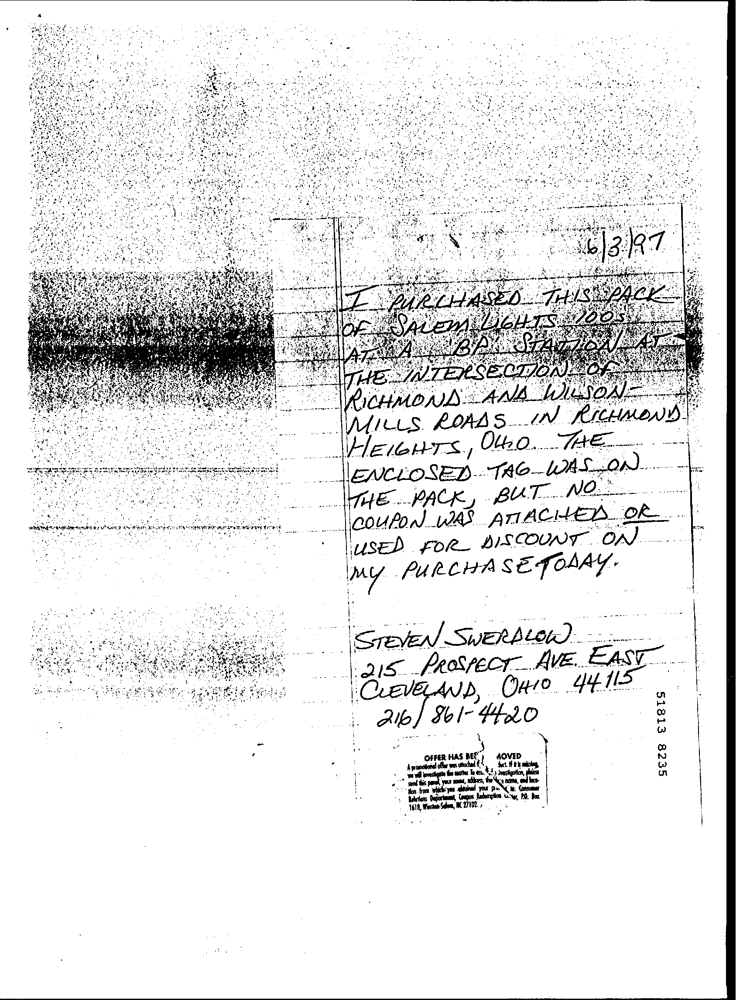 6/3/97
I PURCHASED THIS PACK
OF SALEM LIGHTS 100s
AT A BP STATION AT
THE INTERSECTION OF
RICHMOND AND WILSON
MILLS ROADS IN RICHMOND
HEIGHTS, OHIO. THE
ENCLOSED TAG WAS ON
THE PACK, BUT NO
COUPON WAS ATTACHED OR
USED FOR DISCOUNT ON
MY PURCHASE TODAY.
STEVEN SWERDLOW
215 PROSPECT AVE. EAST
CLEVELAND, OHIO 44115
216/861-4420
51813 8235
OFFER HAS BEE MOVED
A promotional offer was attached If it is missing,
we will investigate the matter. To investigation, please
send this panel, your name, address, the name, and loca-
tion from which you obtained your to: Consumer
Relations Department, Coupon Redemption P.O. Box
1618, Winston-Salem, NC 27102.